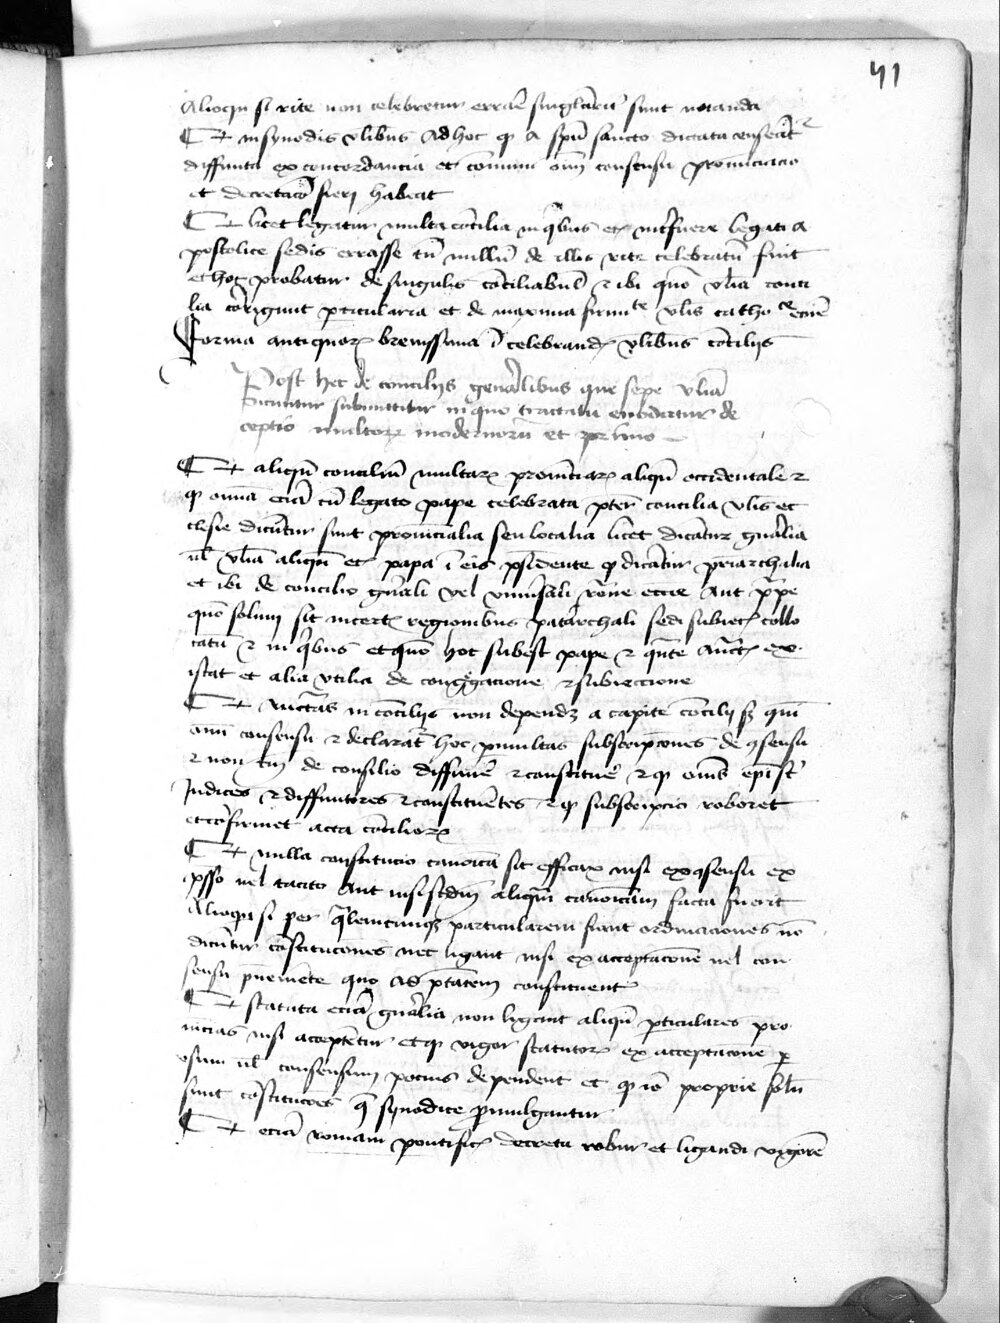 41
Alioqui si rite non celebretur errare singulariter sunt notanda
Et in synodis vlibus ad hoc qd a spu sancto dictata censeatr
diffinita ex concordancia et comuni oim consensu pronunciacio
et decretaco fieri habeat
Et licet legatur multa concilia in qbus etc interfuere legati a
postolice sedis errasse tn nullum de illis rite celebratum fuit
et hoc probatur de singulis conciliabulis et ibi quo vlia conci
lia corrigunt particularia et de maxima firmite vlis catho ce ecclie
Forma antiquorum breuissima in celebrandis vlibus conciliis
Post hec de conciliis generalibus que sepe vlia
dicuntur submittitur in quo tractatu euidatur de
ceptio multorum modernorum et primo
Et aliquod concilium multarum prouinciarum aliquod occidentale et
qd omnia ecia cum legato pape celebrata preter concilia vlis ec
clesie dicuntur sunt prouincialia seu localia licet dicantur gnalia
vel vlia aliquando et papa in eis presidente qd dicantur patriarchalia
et ibi de concilio gnali vel vniuersali racione ecclie aut pape
quo solum sit in certis regionibus patriarchali sedi subiectis collo
catum et in qbus et quo hoc subest pape et quante auctoritatis ex
istat et alia vtilia de congregacione et subieccione
Et auctoritas in conciliis non dependet a capite concilii sed quod
omni consensu et declaratur hoc per multas subscripciones de consensu
et non tm de consilio diffiniuere et constituere et qd omnes episcopi sunt
Judices et diffinitores et constituentes et qd subscripcio roboret
et confirmet acta conciliorum
Et nulla constitucio canonica sit efficax nisi ex consensu ex
presso uel tacito aut nisi secundum aliquam canonicam facta fuerit
Alioqui si per qualemcumque particularem fiant ordinaciones non
dicuntur constituciones nec ligant nisi ex acceptacione uel con
sensu proueniente quo ad potestatem constituentis
Et statuta ecia gnalia non ligant aliquando particulares pro
uincias nisi acceptentur et qd vigor statutorum ex acceptacione per
vsum vel consensum pocius dependent et qd ideo proprie solum
sunt constituciones que synodice promulgantur
Et ecia romani pontificis decreta robur et ligandi vigorem